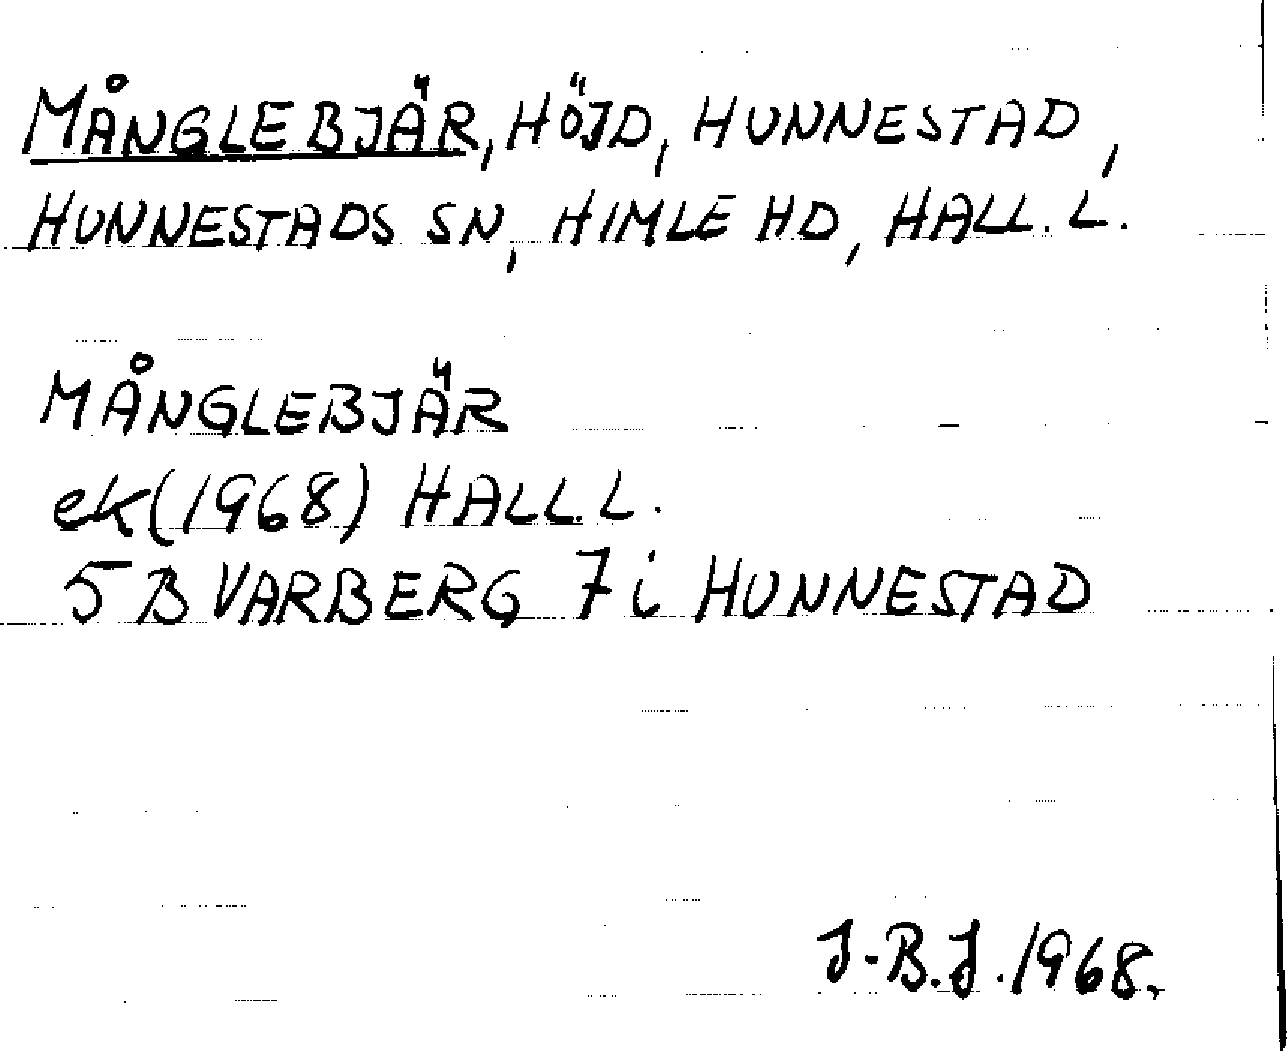 MÅNGLEBJÄR, HÖJD, HUNNESTAD,
HUNNESTADS SN, HIMLE HD, HALL. L.
MÅNGLEBJÄR
ek (1968) HALL. L.
5 B VARBERG 7 i HUNNESTAD
J-B.J. 1968.